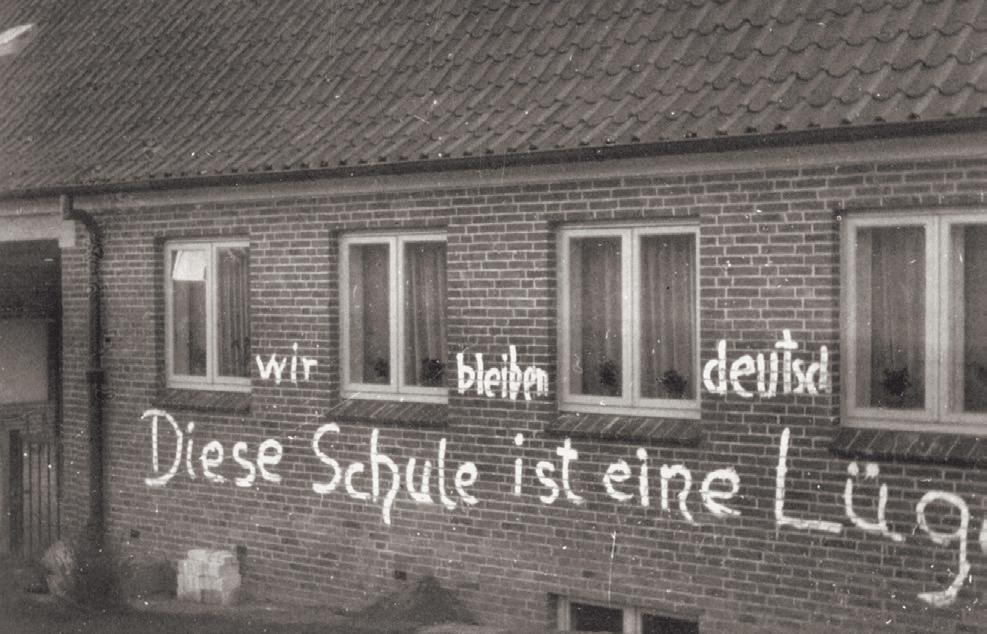 wir bleiben deutsd
Diese Schule ist eine Lüge